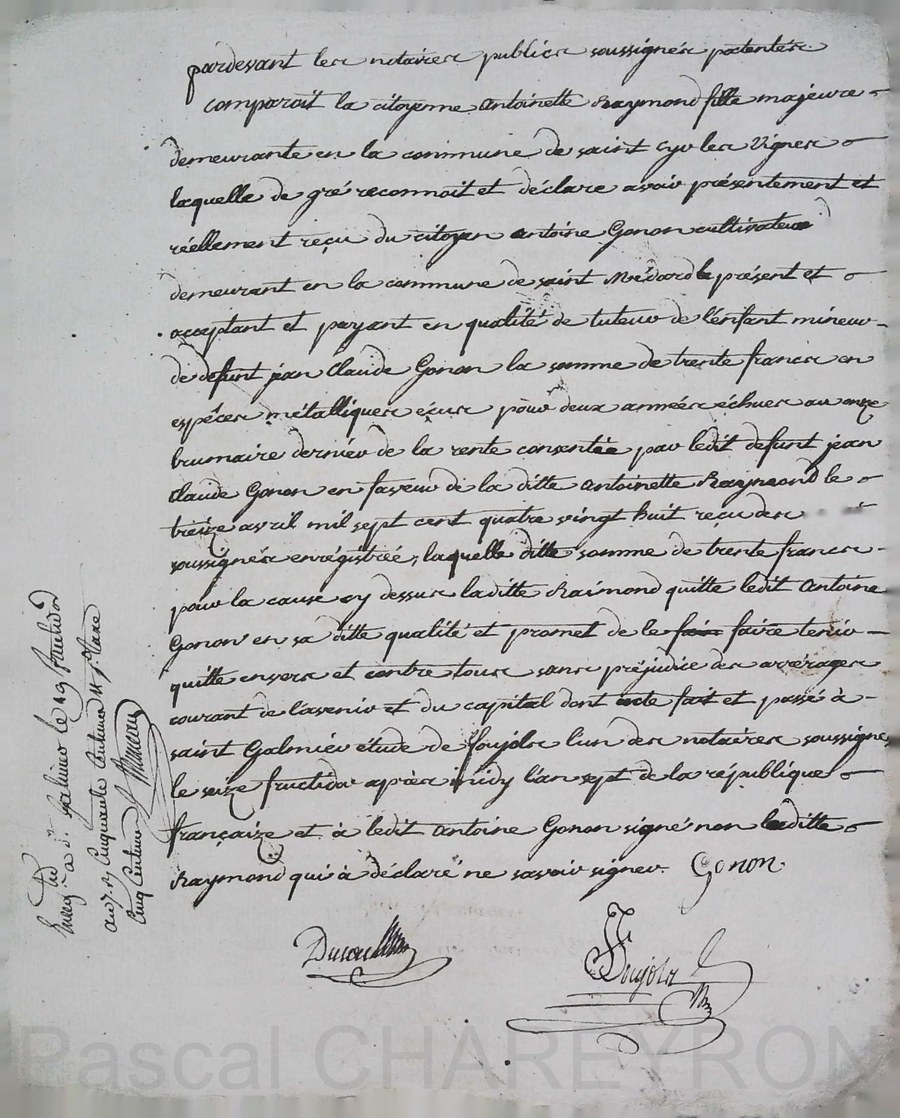 pardevant les notaires publics soussignés patentés
comparait la citoyenne Antoinette Raymond fille majeure
demeurante en la commune de saint Cyr les Vignes
laquelle de gré reconnoit et déclare avoir présentement et
réellement reçu du citoyen antoine Gonon cultivateur
demeurant en la commune de saint Médard le présent et
acceptant et payant en qualité de tuteur de l'enfant mineur
de defunt jean Claude Gonon la somme de trente francs en
espéces métalliques éxus pour deux années échues au onze
brumaire dernier de la rente consentée par ledit defunt jean
Claude Gonon en faveur de la ditte Antoinette Raymond le
treize avril mil sept cent quatre vingt huit reçu des
soussignés enrégistrée, laquelle ditte somme de trente francs
pour la cause cy dessus laditte Raimond quitte ledit Antoine
Gonon en sa ditte qualité et promet de le faire faire tenir
quitte envers et contre tous sans préjudice des arrérages
courant de l'avenir et du capital dont acte fait et passé à
saint Galmier étude de foujols l'un des notaires soussignés
le seize fructidor après midy l'an sept de la république
françaize et à ledit Antoine Gonon signé non laditte
Raymond qui à déclaré ne savoir signer. Gonon
Foujols
Enreg. à St. galmier le 19 fructidor
an 7. R. cinquante centimes Taxe
cinq centimes
Pascal CHAREYRON